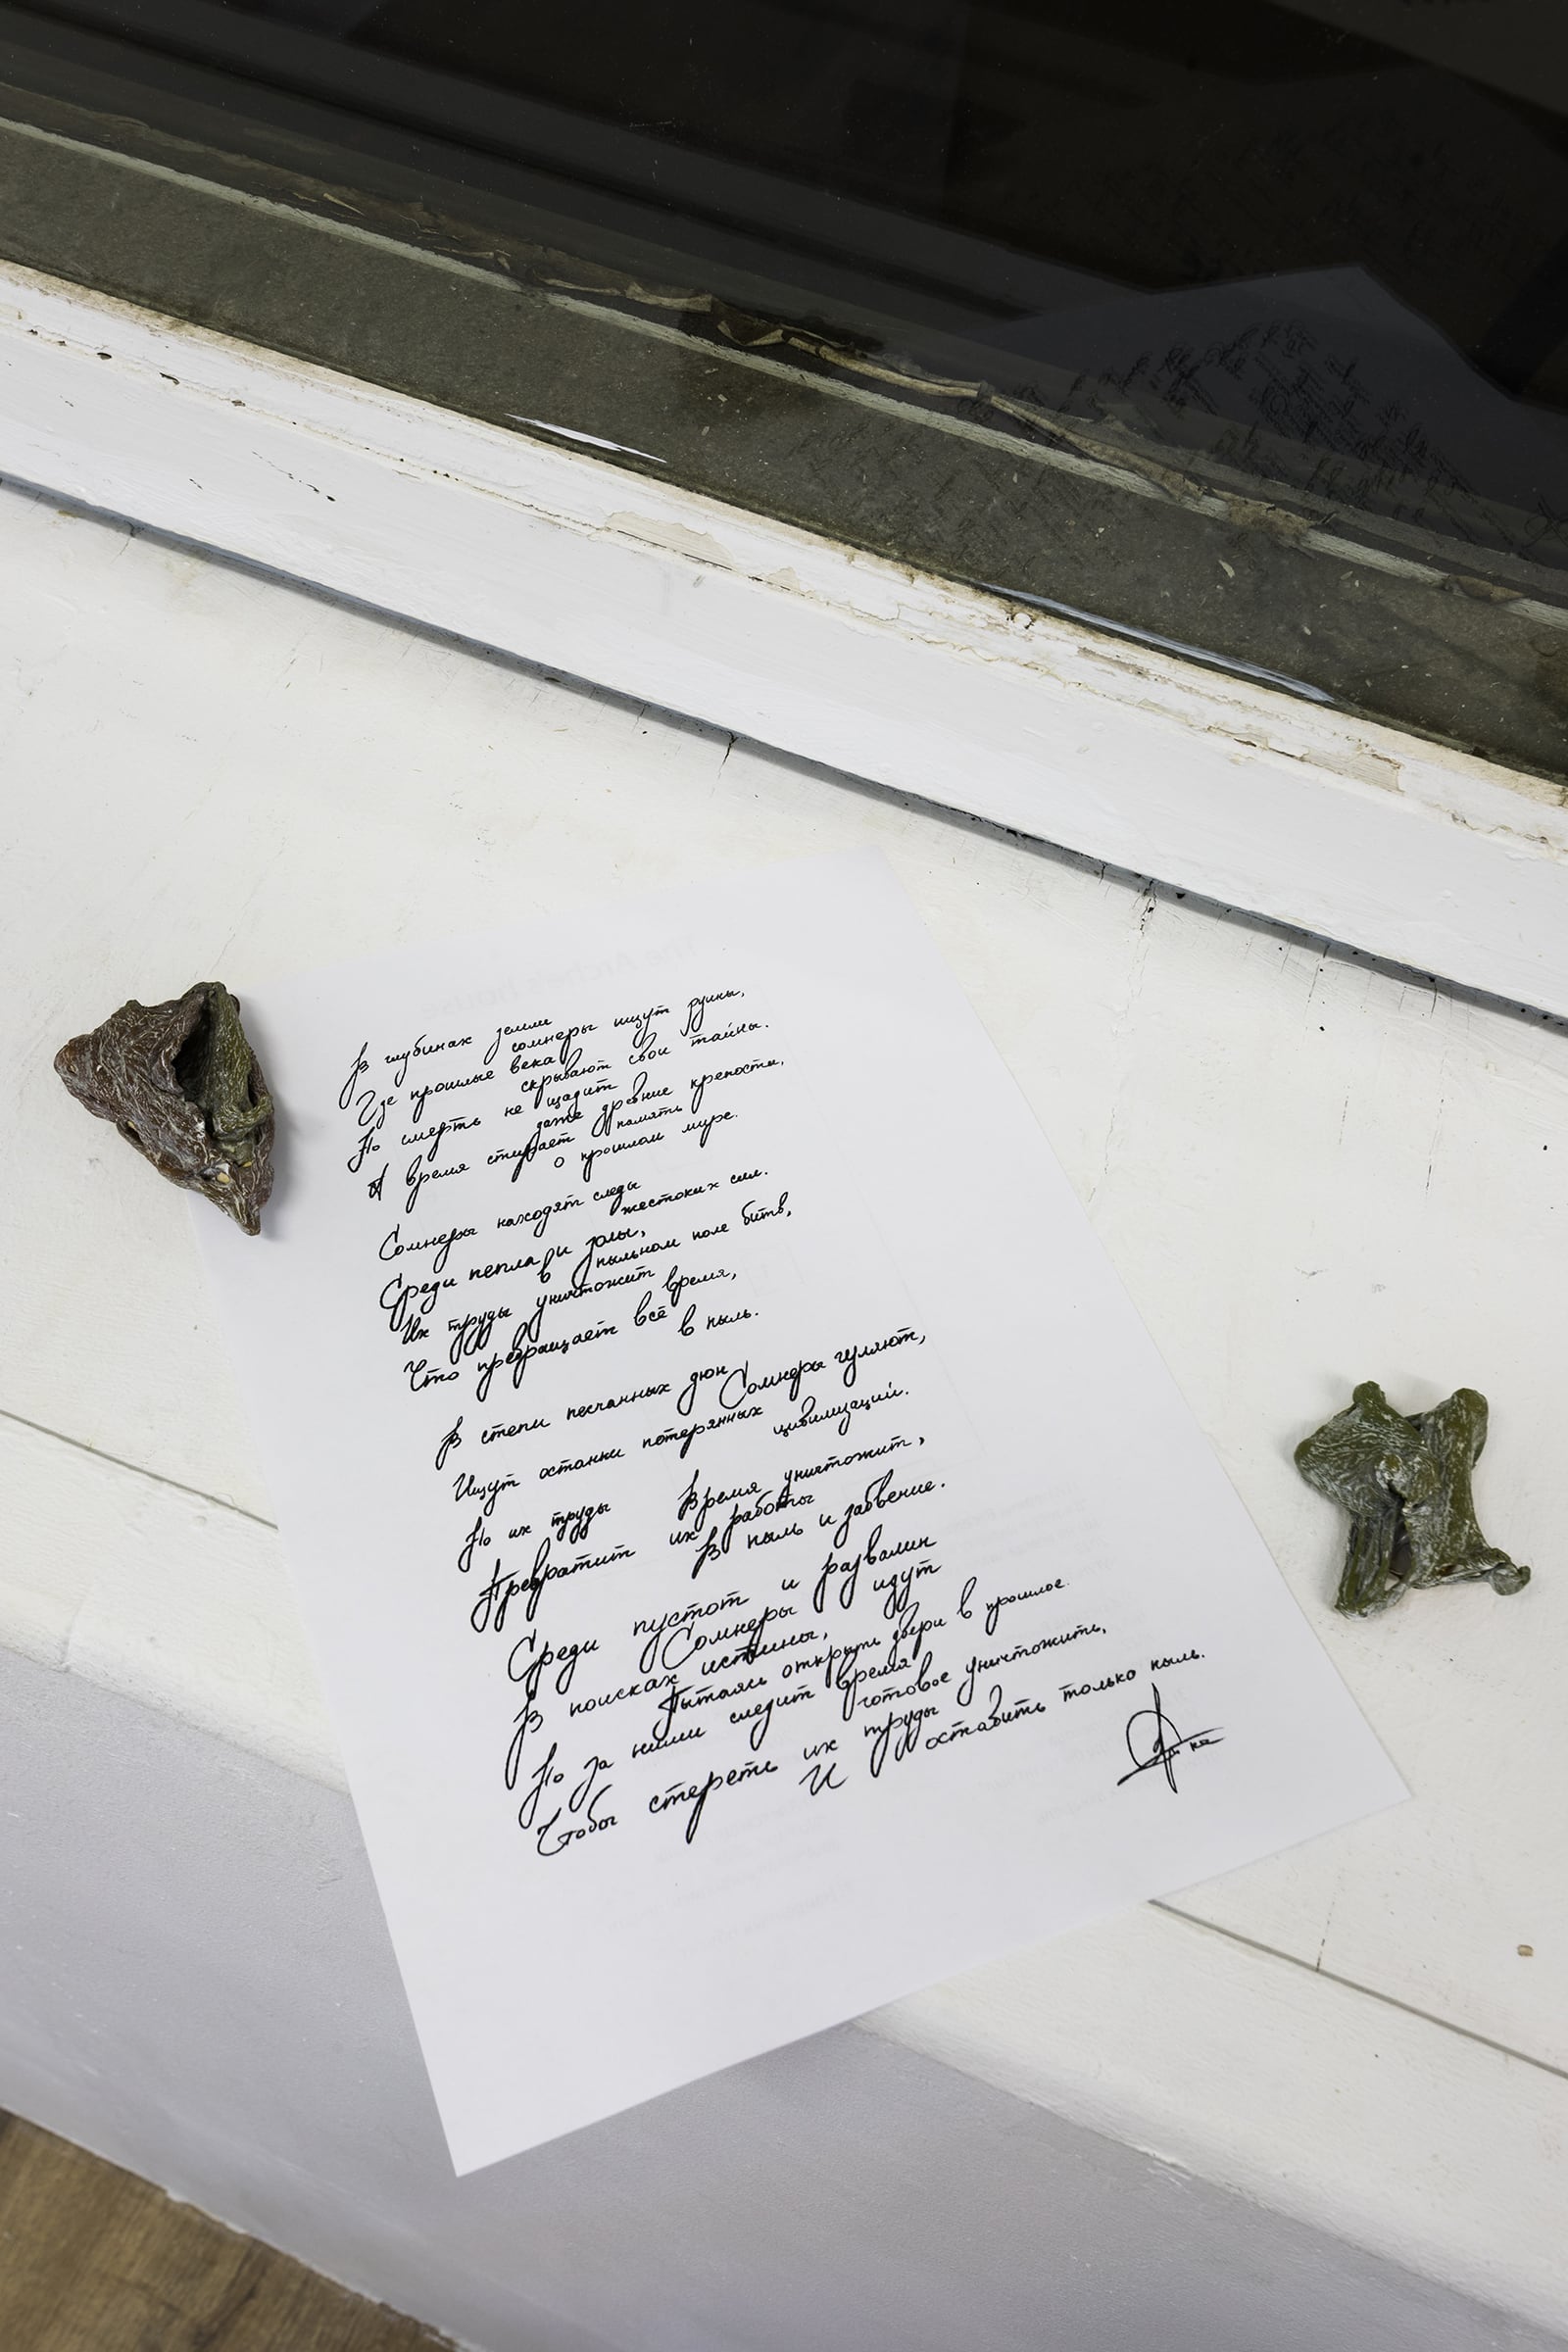 В глубинах земли
сомнеры ищут руины,
Где прошлые века
скрывают свои тайны.
Но смерть не щадит
даже древние крепости,
А время стирает память
о прошлом мире.
Сомнеры находят следы
жестоких сил.
Среди пепла и золы,
в пыльном поле битв,
Их труды уничтожит
время,
Что превращает всё
в пыль.
В степи песчанных дюн
Сомнеры гуляют,
Ищут останки потерянных
цивилизаций.
Но их труды Время уничтожит,
Превратит их работы
В пыль и забвение.
Среди пустот и развалин
Сомнеры идут
В поисках истины,
Пытаясь открыть двери в прошлое.
Но за ними следит время
готовое уничтожить,
Чтобы стереть их труды
И оставить только пыль.